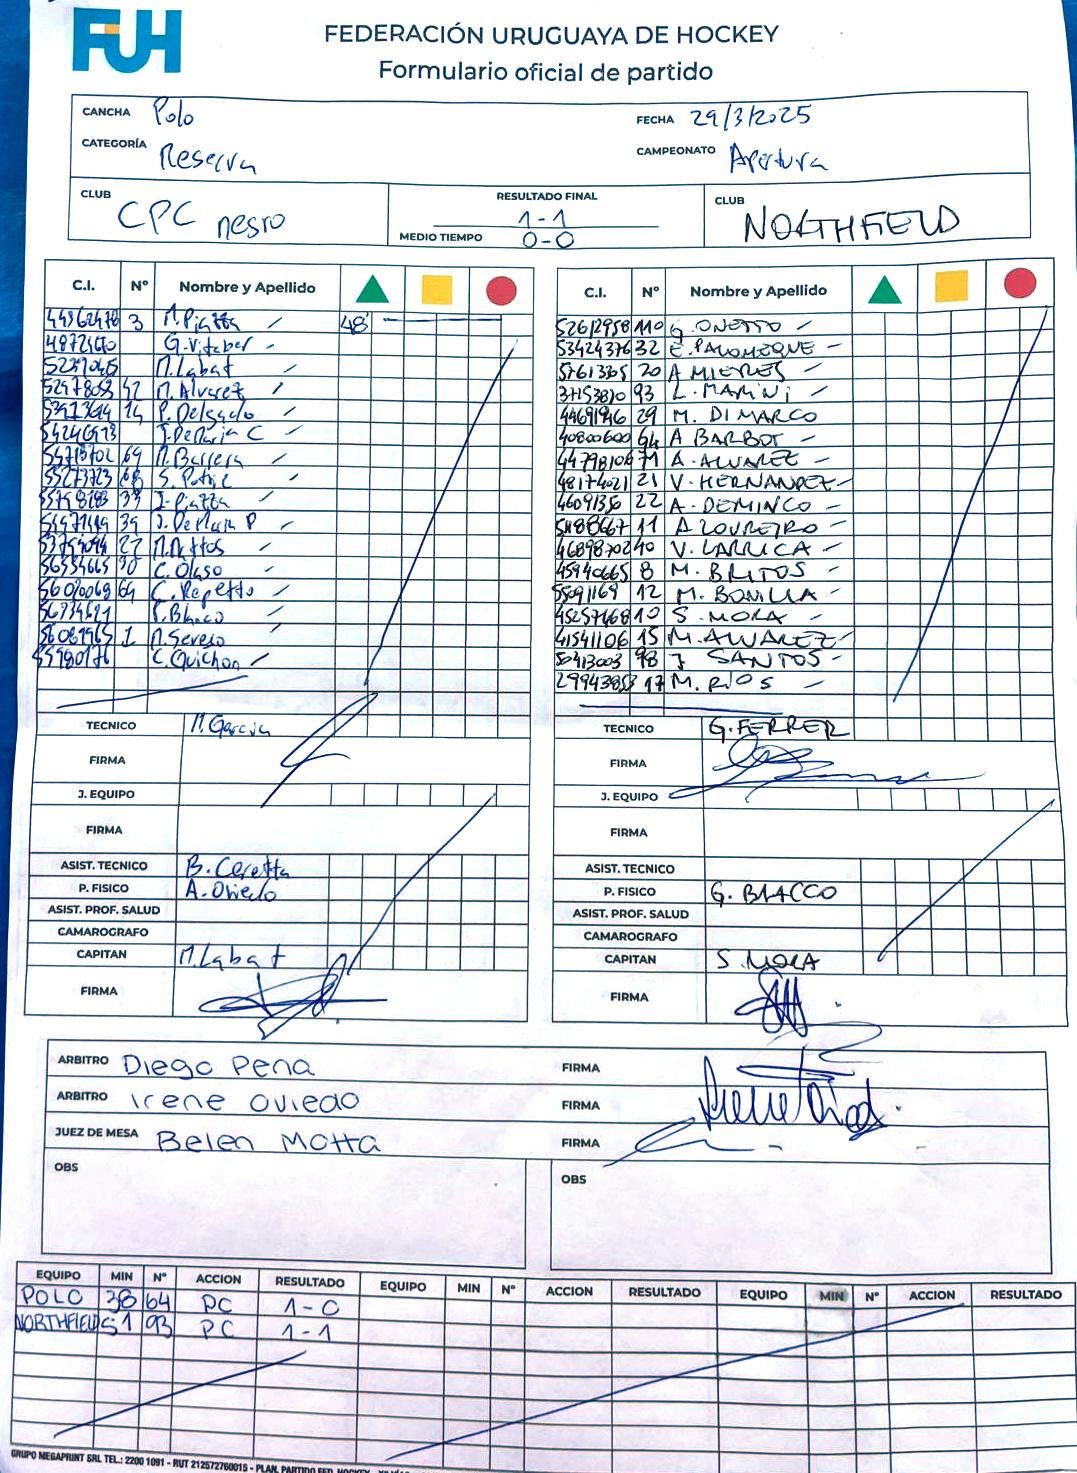 FUH
FEDERACIÓN URUGUAYA DE HOCKEY
Formulario oficial de partido
CANCHA Polo
FECHA 29/3/2025
CATEGORÍA Reserva
CAMPEONATO Apertura
CLUB CPC negro
RESULTADO FINAL 1-1
MEDIO TIEMPO 0-0
CLUB NORTHFIELD
C.I. Nº Nombre y Apellido
3 M. Piazza 48'
G. Vitaber
M. Labat
M. Alvarez
14 P. Delgado
J. De Maria C
69 M. Barrera
68 S. Potrie
J. Piazza
39 J. De Maria P
27 M. Mattos
C. Olaso
64 C. Repetto
P. Blanco
1 M. Severo
C. Quichon
TECNICO M. Garcia
FIRMA
J. EQUIPO
FIRMA
ASIST. TECNICO B. Ceretta
P. FISICO A. Oviedo
ASIST. PROF. SALUD
CAMAROGRAFO
CAPITAN M. Labat
FIRMA
C.I. Nº Nombre y Apellido
52612958 110 G. ONETTO
53424376 32 E. PALOMEQUE
20 A MIERES
37153810 93 L. MARINI
29 M. DI MARCO
40800600 64 A BARBOT
44798106 71 A. ALVAREZ
48174021 21 V. HERNANDEZ
22 A. DEMINCO
11 A LOUREIRO
46898702 40 V. LARRICA
45940665 8 M. BRITOS
55091169 12 M. BONILLA
45257468 10 S. MORA
41541106 15 M. ALVAREZ
50413003 98 J SANTOS
17 M. RIOS
TECNICO G. FERRER
FIRMA
J. EQUIPO
FIRMA
ASIST. TECNICO
P. FISICO G. BRACCO
ASIST. PROF. SALUD
CAMAROGRAFO
CAPITAN S. MORA
FIRMA
ARBITRO Diego Pena FIRMA
ARBITRO Irene Oviedo FIRMA
JUEZ DE MESA Belen Motta FIRMA
OBS
OBS
EQUIPO MIN Nº ACCION RESULTADO EQUIPO MIN Nº ACCION RESULTADO EQUIPO MIN Nº ACCION RESULTADO
POLO 38 64 PC 1-0
NORTHFIELD 51 93 PC 1-1
GRUPO MEGAPRINT SRL TEL.: 2200 1091 - RUT 212572760015 - PLAN. PARTIDO FED. HOCKEY